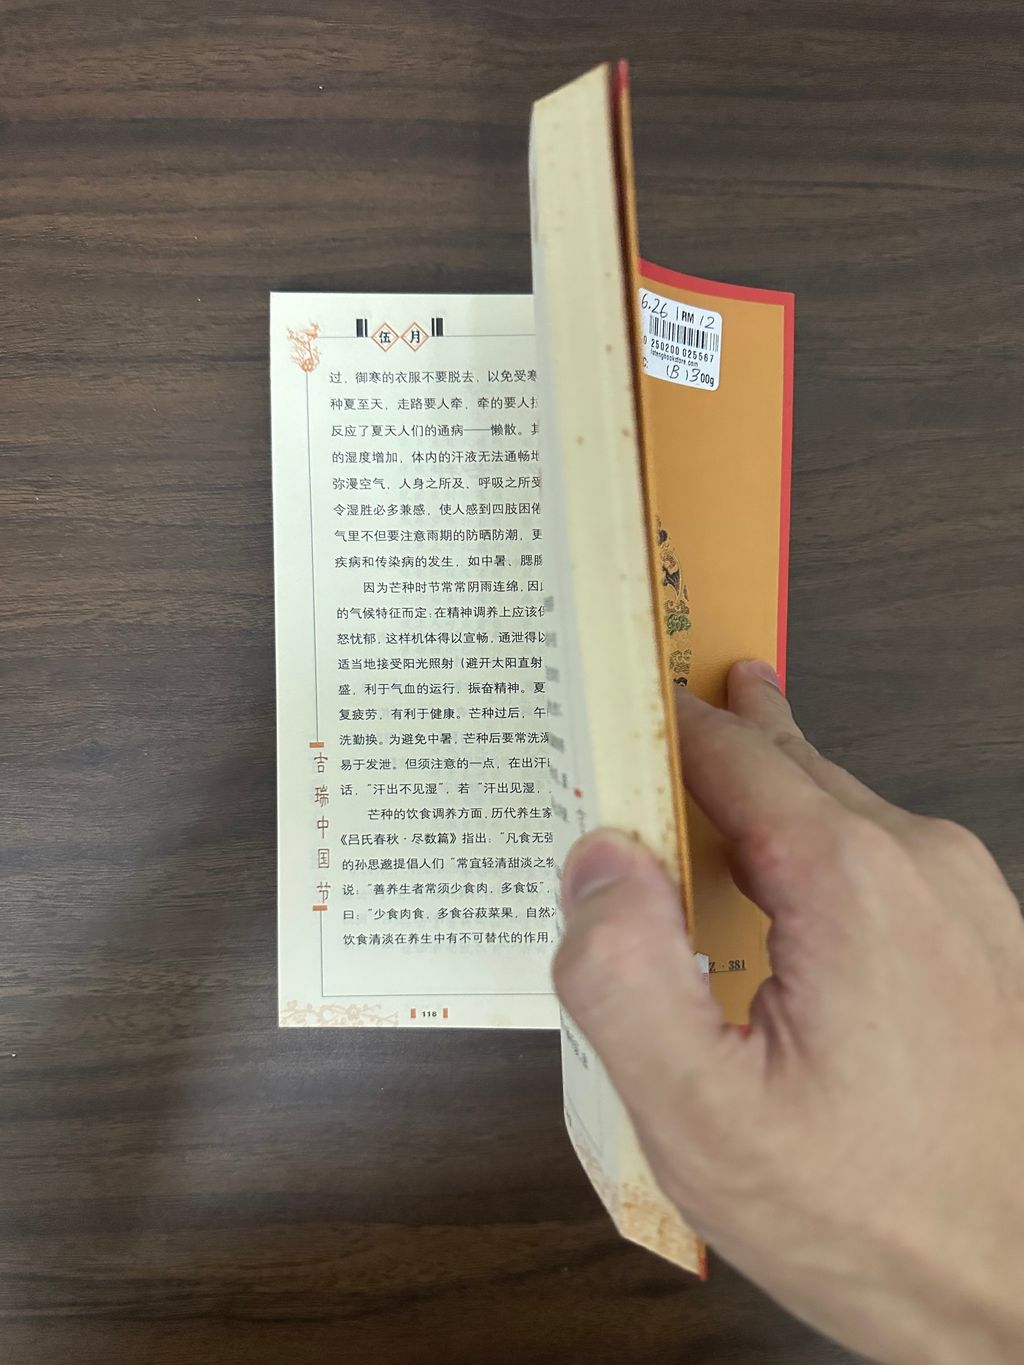 伍月
过，御寒的衣服不要脱去，以免受寒
种夏至天，走路要人牵，牵的要人
反应了夏天人们的通病——懒散。其
的湿度增加，体内的汗液无法通畅地
弥漫空气，人身之所及、呼吸之所受
令湿胜必多兼感，使人感到四肢困倦
气里不但要注意雨期的防晒防潮，更
疾病和传染病的发生，如中暑、腮腺
因为芒种时节常常阴雨连绵，因
的气候特征而定：在精神调养上应该保
怒忧郁，这样机体得以宣畅，通泄得以
适当地接受阳光照射（避开太阳直射
盛，利于气血的运行，振奋精神。夏
复疲劳，有利于健康。芒种过后，午
洗勤换。为避免中暑，芒种后要常洗澡
易于发泄。但须注意的一点，在出汗
话，“汗出不见湿”，若“汗出见湿，
芒种的饮食调养方面，历代养生家
《吕氏春秋·尽数篇》指出：“凡食无强
的孙思邈提倡人们“常宜轻清甜淡之物
说：“善养生者常须少食肉，多食饭”，
曰：“少食肉食，多食谷菽菜果，自然
饮食清淡在养生中有不可替代的作用，
吉瑞中国节
118
6.26 1 RM 12
250200 025567
(B) 1300g
Z·381